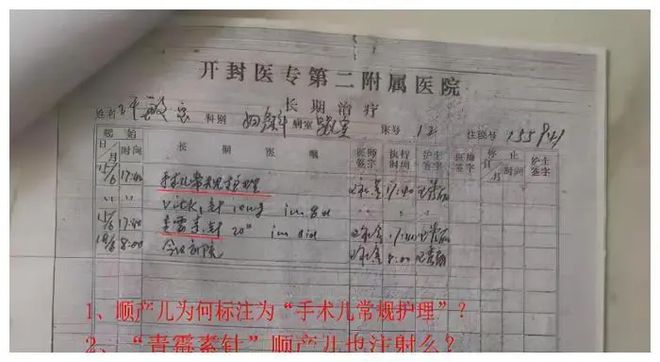 开封医专第二附属医院
长期治疗
姓名 许敏 科别 妇产科 病室 床号 12 住院号
起始 长期医嘱 医师签字 执行时间 护士签字 医师签字 停止 护士签字
日/月 时间 日/月 时间
15/6 17:40 手术儿常规护理 17:40
〃 〃 Vitk₁针 10mg im qd
15/6 17:40 青霉素针 20 im bid 17:40
18/6 8:00 今日出院 8:00
1、顺产儿为何标注为“手术儿常规护理”？
2、“青霉素针”顺产儿也注射么？